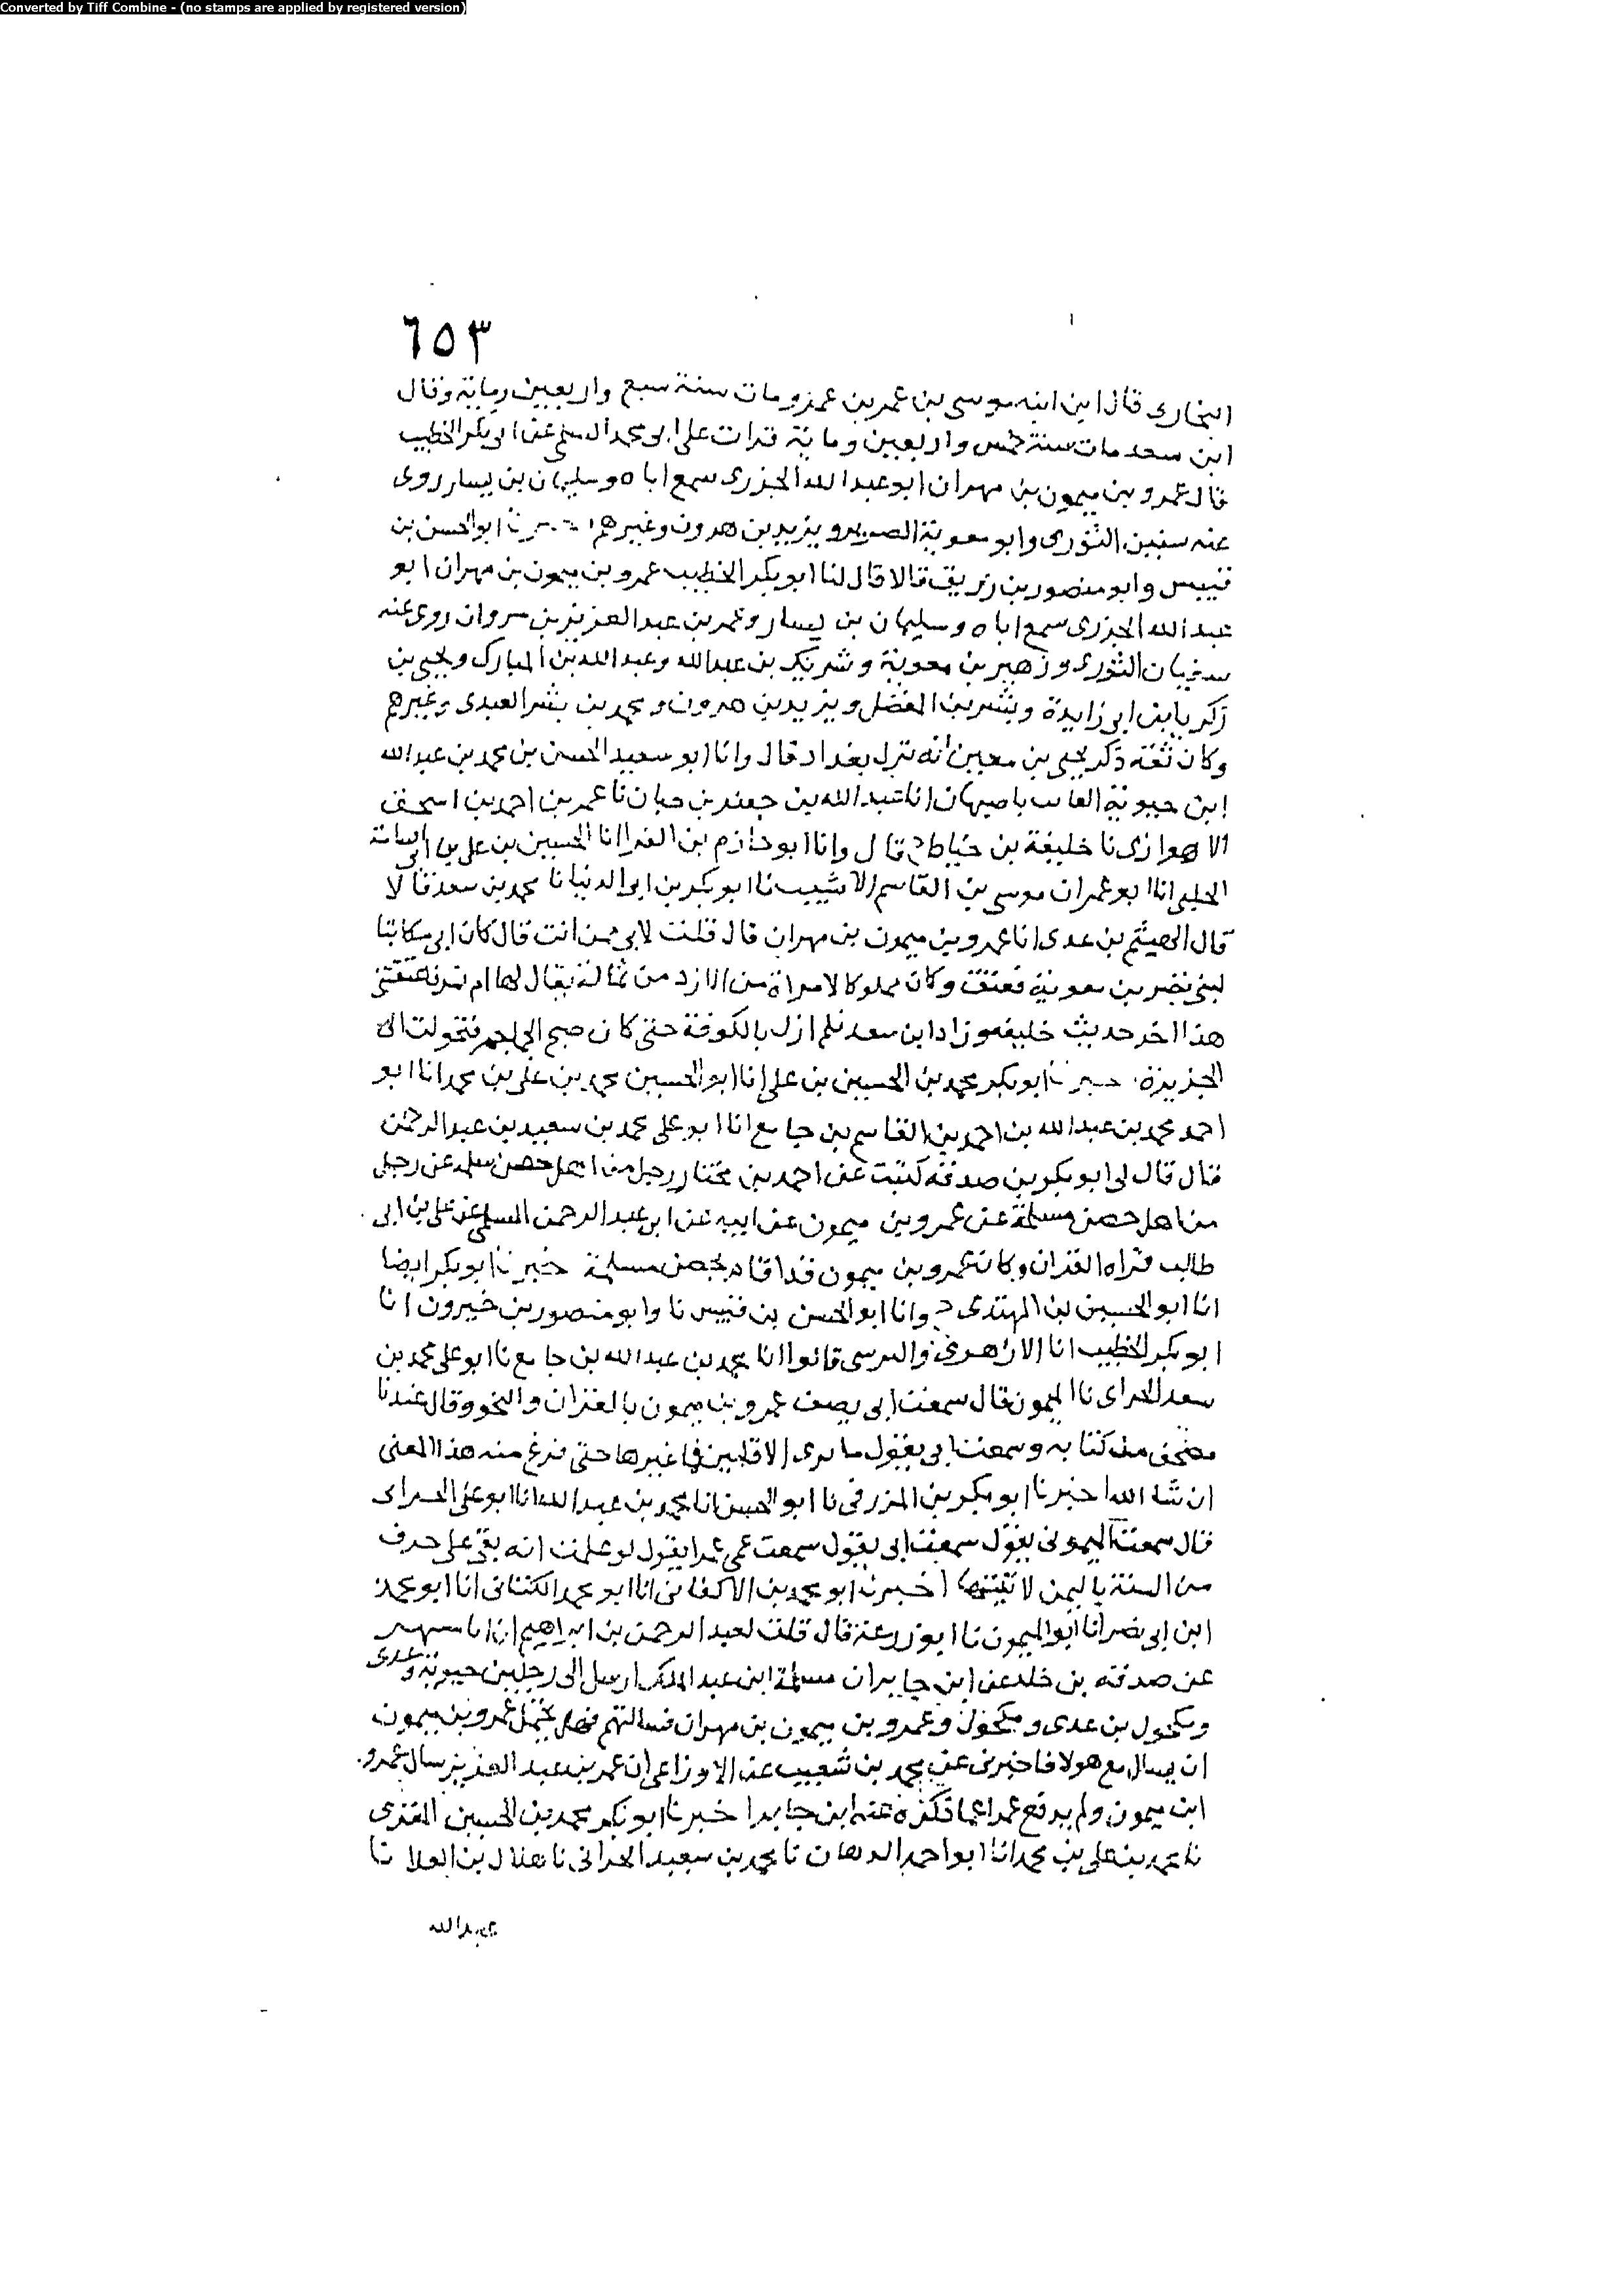 Converted by Tiff Combine - (no stamps are applied by registered version)
٦٥٣
البخارى قال ابن ابنه موسى بن عمر بن عمرو مات سنة سبع واربعين وماية وقال
ابن سعد مات سنة خمس واربعين وماية قرات على ابى محمد السلمى عن ابى بكر الخطيب
قال عمرو بن ميمون بن مهران ابو عبد الله الجزرى سمع اباه وسليمان بن يسار روى
عنه سفين الثورى وابو معوية الضرير ويزيد بن هرون وغيرهم ابو الحسن بن
قبيس وابو منصور بن زريق قالا قال لنا ابو بكر الخطيب عمرو بن ميمون بن مهران ابو
عبد الله الجزرى سمع اباه وسليمان بن يسار وعمر بن عبد العزيز بن مروان روى عنه
سفيان الثورى وزهير بن معوية وشريك بن عبد الله وعبد الله بن المبارك ويحيى بن
زكريا بن ابى زايدة وبشر بن المفضل ويزيد بن هرون ومحمد بن بشر العبدى وغيرهم
وكان ثقة ذكر يحيى بن معين انه نزل بغداد قال وانا ابو سعيد الحسن بن محمد بن عبد الله
ابن حيوية باصبهان انا عبد الله بن جعفر بن حيان نا عمر بن احمد بن اسحق
الاهوازى نا خليفة بن خياط ح قال وانا ابو حازم بن الفرا انا الحسين بن على بن ابى اسامة
الحلبى انا ابو عمران موسى بن القاسم الاشيب نا ابو بكر بن ابى الدنيا نا محمد بن سعد قالا
قال الهيثم بن عدى انا عمرو بن ميمون بن مهران قال قلت لابى ممن انت قال كان ابى مكاتبا
لبنى نضر بن معوية فعتق وكان مملوكا لامراة من الازد من ثمالة يقال لها ام نمر فعتقتنى
هذا اخر حديث خليفة وزاد ابن سعد فلم ازل بالكوفة حتى كان هيج الجماجم فتحولت الى
الجزيرة ابو بكر محمد بن الحسين بن على انا ابو الحسين محمد بن على بن محمد انا ابو
احمد محمد بن عبد الله بن احمد بن القاسم بن جامع انا ابو على محمد بن سعيد بن عبد الرحمن
قال قال لى ابو بكر بن صدقة كتبت عن احمد بن مختار رجل من اهل حصن مسلمة عن رجل
من اهل حصن مسلمة عن عمرو بن ميمون عن ابيه عن ابى عبد الرحمن السلمى عن على بن ابى
طالب قراه القران وكان عمرو بن ميمون قد اقام بحصن مسلمة خبرنا ابو بكر ايضا
انا ابو الحسين بن المهتدى ح وانا ابو الحسن بن قبيس نا وابو منصور بن خيرون انا
ابو بكر الخطيب انا الازهرى قالوا انا محمد بن عبد الله بن جامع نا ابو على محمد بن
سعيد الحرانى نا الميمونى قال سمعت ابى يصف عمرو بن ميمون بالقران والنحو وقال عندنا
مصحف من كتابه وسمعت ابى يقول ما برى الا قلمين فما غيرها حتى فرغ منه هذا المعنى
ان شا الله اخبرنا ابو بكر بن المزرفى نا ابو الحسن انا محمد بن عبد الله انا ابو على الحرانى
قال سمعت الميمونى يقول سمعت ابى يقول سمعت عمى عمرا يقول لو علمت انه بقى على حرف
من السنة باليمن لاتيتها اخبرنا ابو محمد بن الاكفانى انا ابو محمد الكتانى انا ابو محمد
ابن ابى نصر انا ابو الميمون نا ابو زرعة قال قلت لعبد الرحمن بن ابراهيم ان ابا مسهر
عن صدقة بن خلد عن ابن جابر ان مسلمة ابن عبد الملك ارسل الى رجا بن حيوية وعدى
ومكحول بن عدى ومكحول وعمرو بن ميمون بن مهران فسالهم فهل يحتمل عمرو بن ميمون
ان يسال مع هولا فاخبرنى عن محمد بن شعيب عن الاوزاعى ان عمر بن عبد العزيز سال عمرو
ابن ميمون ولم يدفع عمرا عما ذكره عنه ابن جابر اخبرنا ابو بكر محمد بن الحسين المقرى
نا محمد بن على بن محمد انا ابو احمد الدهان نا محمد بن سعيد الحرانى نا هلال بن العلا نا
عبد الله